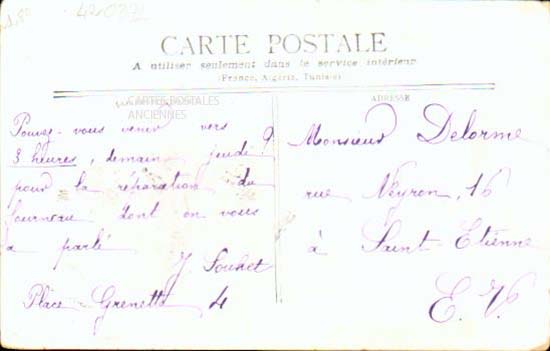 CARTE POSTALE
A utiliser seulement dans le service intérieur
(France, Algérie, Tunisie)
CARTES POSTALES
ANCIENNES
Pouvez-vous venir vers
3 heures, demain jeudi ?
pour la réparation du
fourneau dont on vous
a parlé
J. Souhet
Place Grenette 4
ADRESSE
Monsieur Delorme
rue Neyron, 16
à Saint Etienne
E. V.